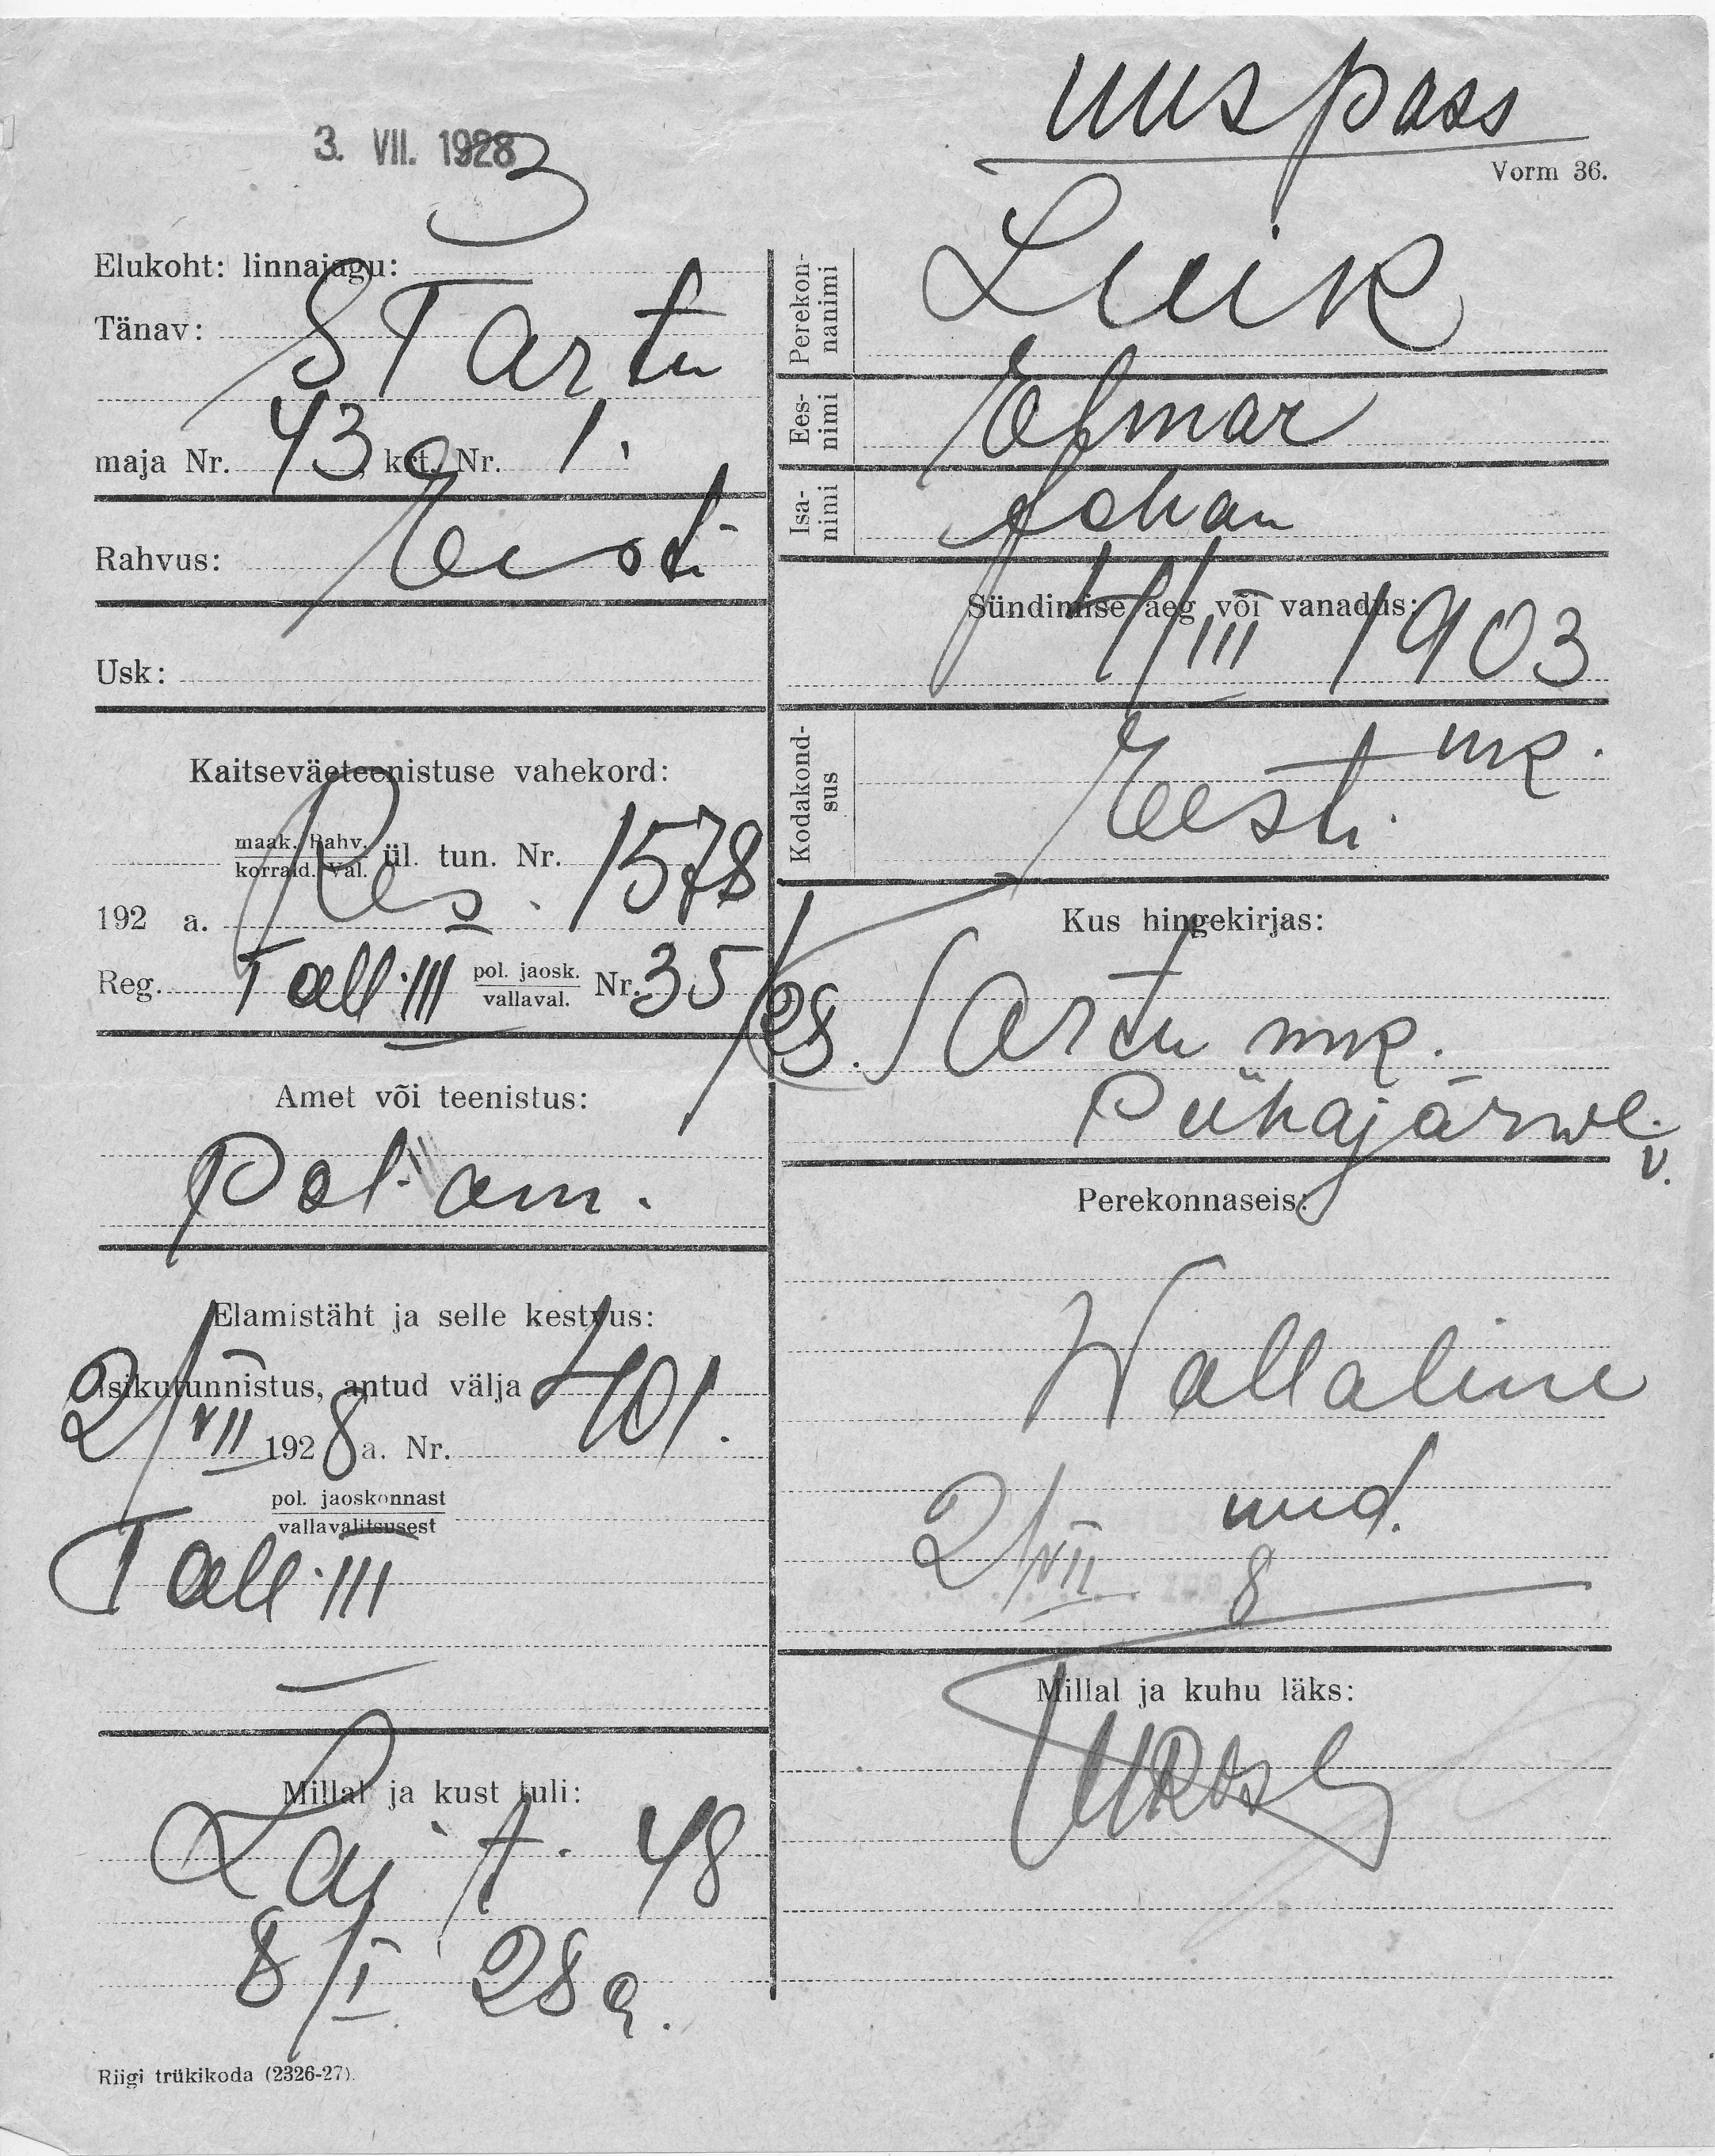 uus pass
3. VII. 1928
3
Vorm 36.
Elukoht: linnajagu:
Tänav: S Tartu
maja Nr. 43 a krt. Nr. 1.
Rahvus: Eesti
Usk:
Kaitseväeteenistuse vahekord:
maak. Rahv.
korrald. Val. ül. tun. Nr. 1578
192 a. Res.
Reg. Tall. III pol. jaosk.
vallaval. Nr. 35
/28.
Amet või teenistus:
Pol. am.
Elamistäht ja selle kestvus:
Isikutunnistus, antud välja
2/VII 1928 a. Nr. 401.
pol. jaoskonnast
vallavalitsusest
Tall. III
Millal ja kust tuli:
Lai t. 48
8/I 28 a.
Riigi trükikoda (2326-27).
Perekon-
nanimi
Luik
Ees-
nimi
Elmar
Isa-
nimi
Johan
Sündimise aeg või vanadus:
/III 1903
Kodakond-
sus
mk.
Eesti
Kus hingekirjas:
Tartu mk.
Pühajärwe
v.
Perekonnaseis:
Wallaline
2/VII 8
Millal ja kuhu läks: